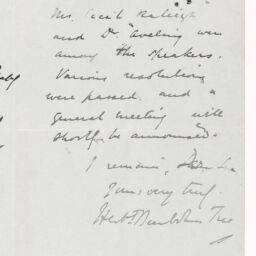 Mr. Cecil Raleigh
and Dr. Aveling were
among the speakers.
Various resolutions
were passed and a
general meeting will
shortly be announced.
I remain, Sir
Yours very truly.
Herbt Beerbohm Tree